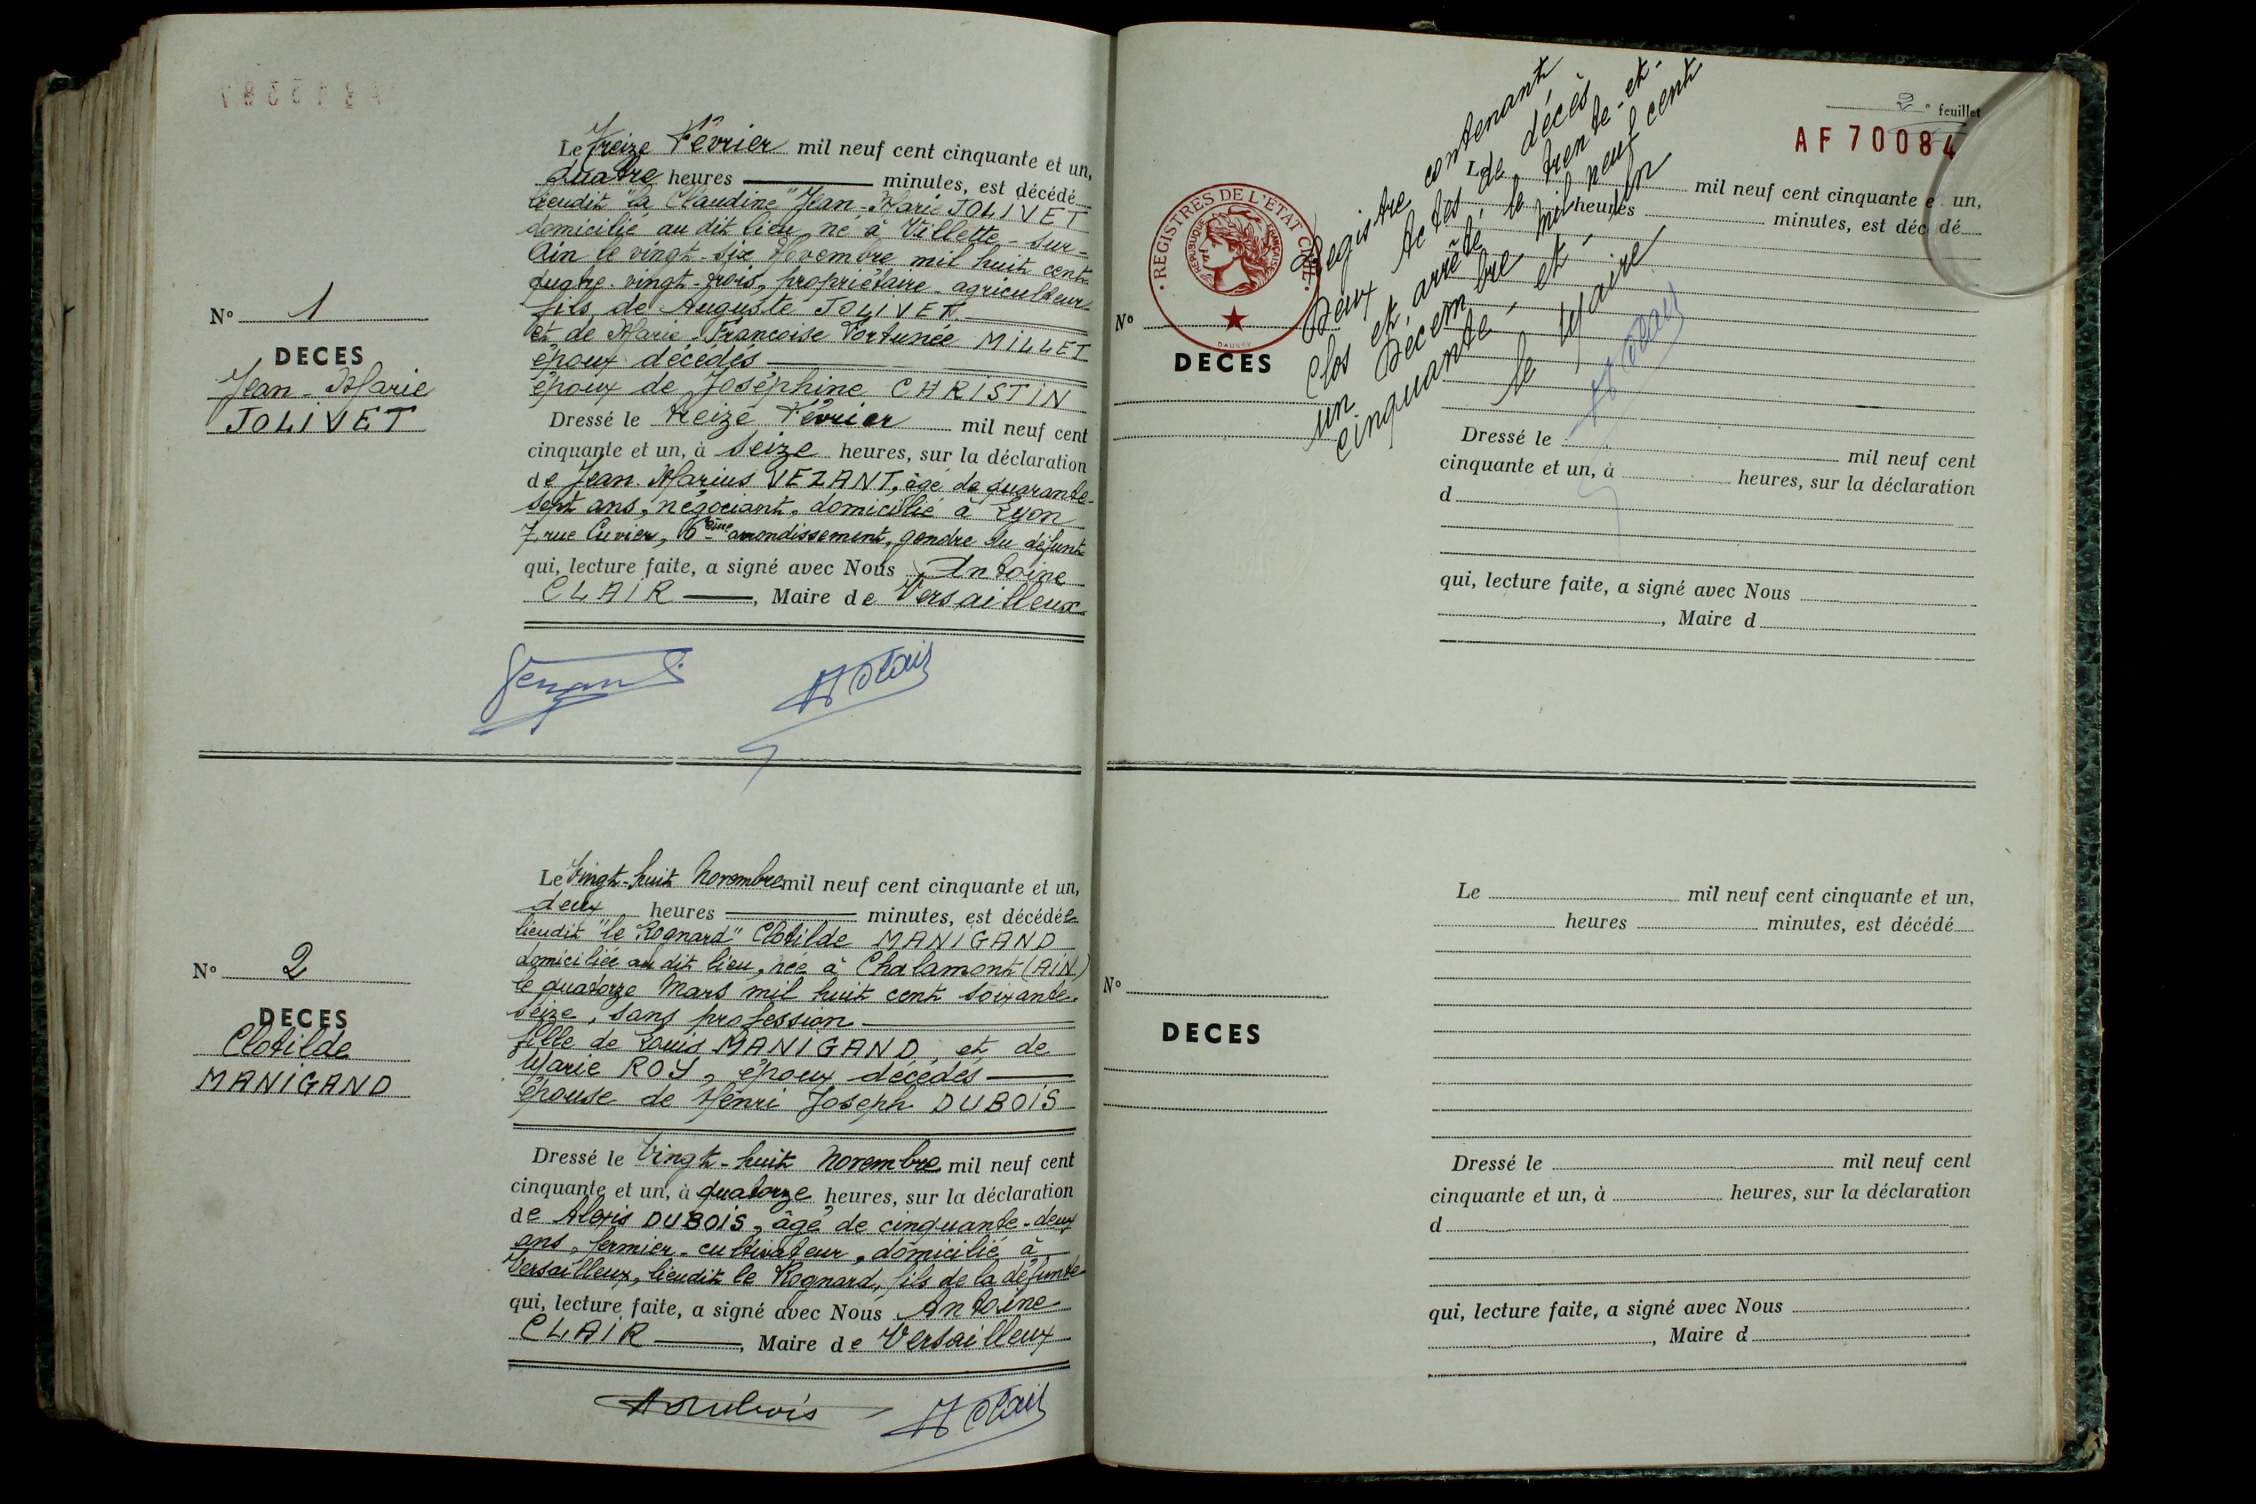 N° 1
DECES
Jean-Marie
JOLIVET
Le treize Février mil neuf cent cinquante et un,
quatre heures minutes, est décédé
lieudit "la Claudine" Jean-Marie JOLIVET
domicilié au dit lieu, né à Villette-sur-
Ain le vingt-six Novembre mil huit cent
quatre-vingt-trois, propriétaire-agriculteur
fils de Auguste JOLIVET
et de Marie Françoise Fortunée MILLET
époux décédés
époux de Joséphine CHRISTIN
Dressé le treize Février mil neuf cent
cinquante et un, à seize heures, sur la déclaration
de Jean-Marius VEZANT, âgé de quarante-
sept ans, négociant, domicilié à Lyon
7, rue Cuvier, 6ème arrondissement, gendre du défunt
qui, lecture faite, a signé avec Nous Antoine
CLAIR, Maire de Versailleux
Vezant
A Clair
N° 2
DECES
Clotilde
MANIGAND
Le Vingt-huit Novembre mil neuf cent cinquante et un,
deux heures minutes, est décédée
lieudit "le Rognard" Clotilde MANIGAND
domiciliée au dit lieu, née à Chalamont (AIN)
le quatorze Mars mil huit cent soixante-
seize, sans profession
fille de Louis MANIGAND et de
Marie ROY, époux décédés
épouse de Henri Joseph DUBOIS
Dressé le Vingt-huit Novembre mil neuf cent
cinquante et un, à quatorze heures, sur la déclaration
de Alexis DUBOIS, âgé de cinquante-deux
ans, fermier-cultivateur, domicilié à
Versailleux, lieudit le Rognard, fils de la défunte
qui, lecture faite, a signé avec Nous Antoine
CLAIR, Maire de Versailleux
A Dubois
A Clair
2e feuillet
AF 70084
REGISTRES DE L'ETAT CIVIL
REPUBLIQUE FRANÇAISE
Registre contenant
Deux Actes de décès
Clos et arrêté, le trente-et-
un Décembre mil neuf cent
cinquante et un
le Maire
A Clair
N°
DECES
Le mil neuf cent cinquante et un,
heures minutes, est décédé
Dressé le mil neuf cent
cinquante et un, à heures, sur la déclaration
d
qui, lecture faite, a signé avec Nous
, Maire d
N°
DECES
Le mil neuf cent cinquante et un,
heures minutes, est décédé
Dressé le mil neuf cent
cinquante et un, à heures, sur la déclaration
d
qui, lecture faite, a signé avec Nous
, Maire d